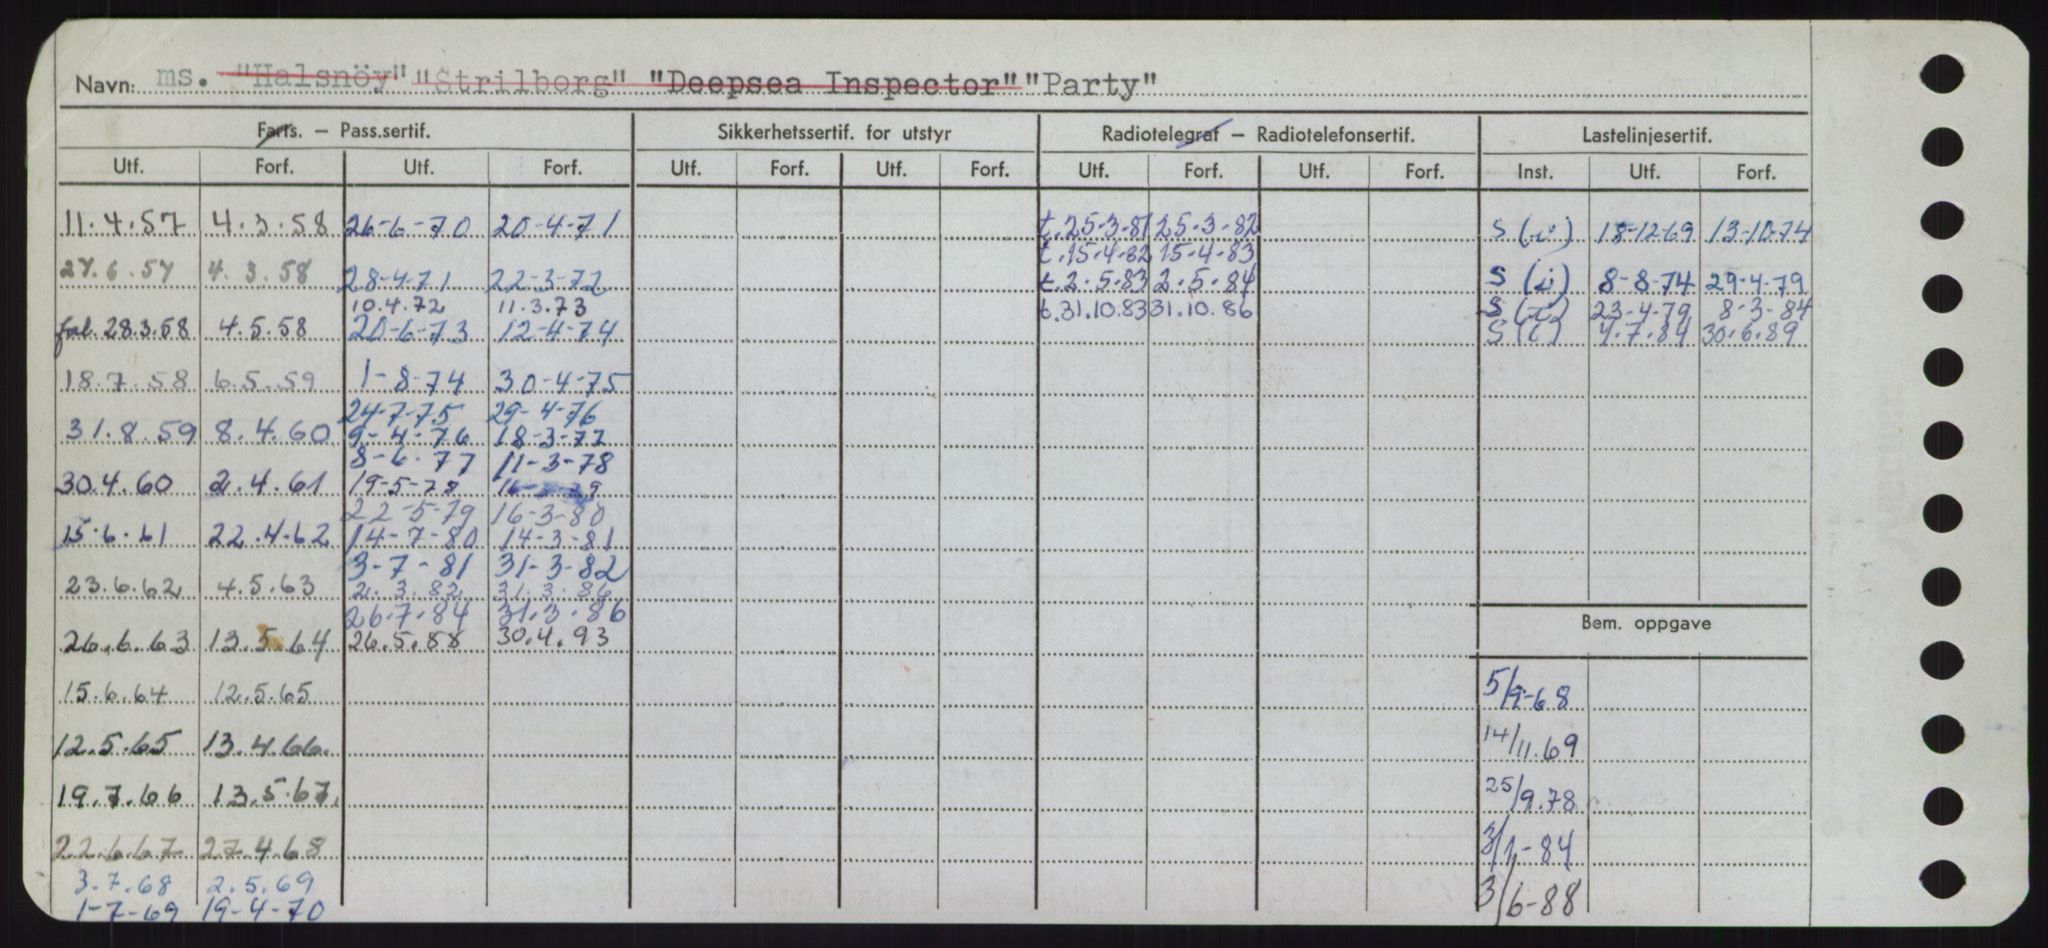 Navn: ms. "Halsnöy" "Strilborg" "Deepsea Inspector" "Party"
Farts. – Pass.sertif. Sikkerhetssertif. for utstyr Radiotelegraf – Radiotelefonsertif. Lastelinjesertif.
Utf. Forf. Utf. Forf. Utf. Forf. Utf. Forf. Utf. Forf. Utf. Forf. Inst. Utf. Forf.
11.4.57 4.3.58 26-6-70 20-4-71 t.25-3-81 25-3-82 S (i) 18-12-69 13-10-74
t.15.4.82 15.4.83
27.6.57 4.3.58 28-4-71 22-3-72 t.2.5.83 2.5.84 S (i) 8-8-74 29-4-79
10.4.72 11.3.73 t.31.10.83 31.10.86 S (i) 23-4-79 8-3-84
fal. 28.3.58 4.5.58 20-6-73 12-4-74 S (i) 4.7.84 30.6.89
18.7.58 6.5.59 1-8-74 30-4-75
24-7-75 29-4-76
31.8.59 8.4.60 9-4-76 18-3-77
8-6-77 11-3-78
30.4.60 2.4.61 19-5-78
22-5-79 16-3-80
15.6.61 22.4.62 14-7-80 14-3-81
3-7-81 31-3-82
23.6.62 4.5.63 2.3.82 31.3.86
26.7.84 31.3.86
Bem. oppgave
26.6.63 13.5.64 26.5.88 30.4.93
15.6.64 12.5.65 5/9-68
12.5.65 13.4.66. 14/11.69
19.7.66 13.5.67. 25/9.78
22.6.67 27.4.68 3/1-84
3.7.68 2.5.69
1-7-69 19-4-70 3/6-88